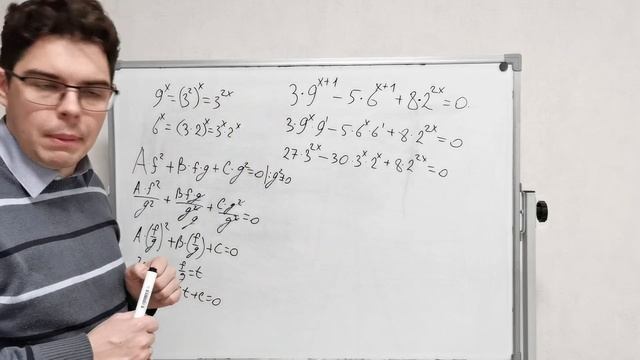 9^x=(3^2)^x=3^{2x}
6^x=(3·2)^x=3^x·2^x
A f^2+B·f·g+C·g^2=0 |:g^2≠0
A·f^2/g^2+B·f·g/g^2+C·g^2/g^2=0
A·(f/g)^2+B·(f/g)+C=0
f/g=t
t+C=0
3·9^{x+1}-5·6^{x+1}+8·2^{2x}=0
3·9^x·9^1-5·6^x·6^1+8·2^{2x}=0
27·3^{2x}-30·3^x·2^x+8·2^{2x}=0